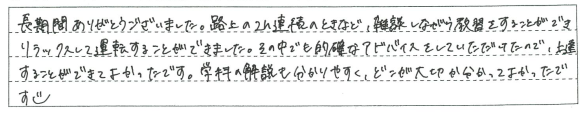 長期間ありがとうございました。路上の2人連続のときなど、雑談しながら教習をすることができ
リラックスして運転することができました。その中でも的確なアドバイスをしていただけたので、上達
することができてよかったです。学科の解説も分かりやすく、どこが大切か分かってよかったで
す